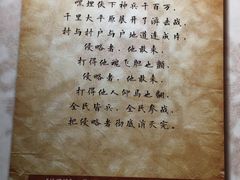 埋伏下神兵千百万,
千里大平原展开了游击战,
村与村户与户地道连成片,
侵略者,他敢来,
打得他魂飞胆也颤,
侵略者,他敢来,
打得他人仰马也翻,
全民皆兵,全民参战,
把侵略者彻底消灭完。